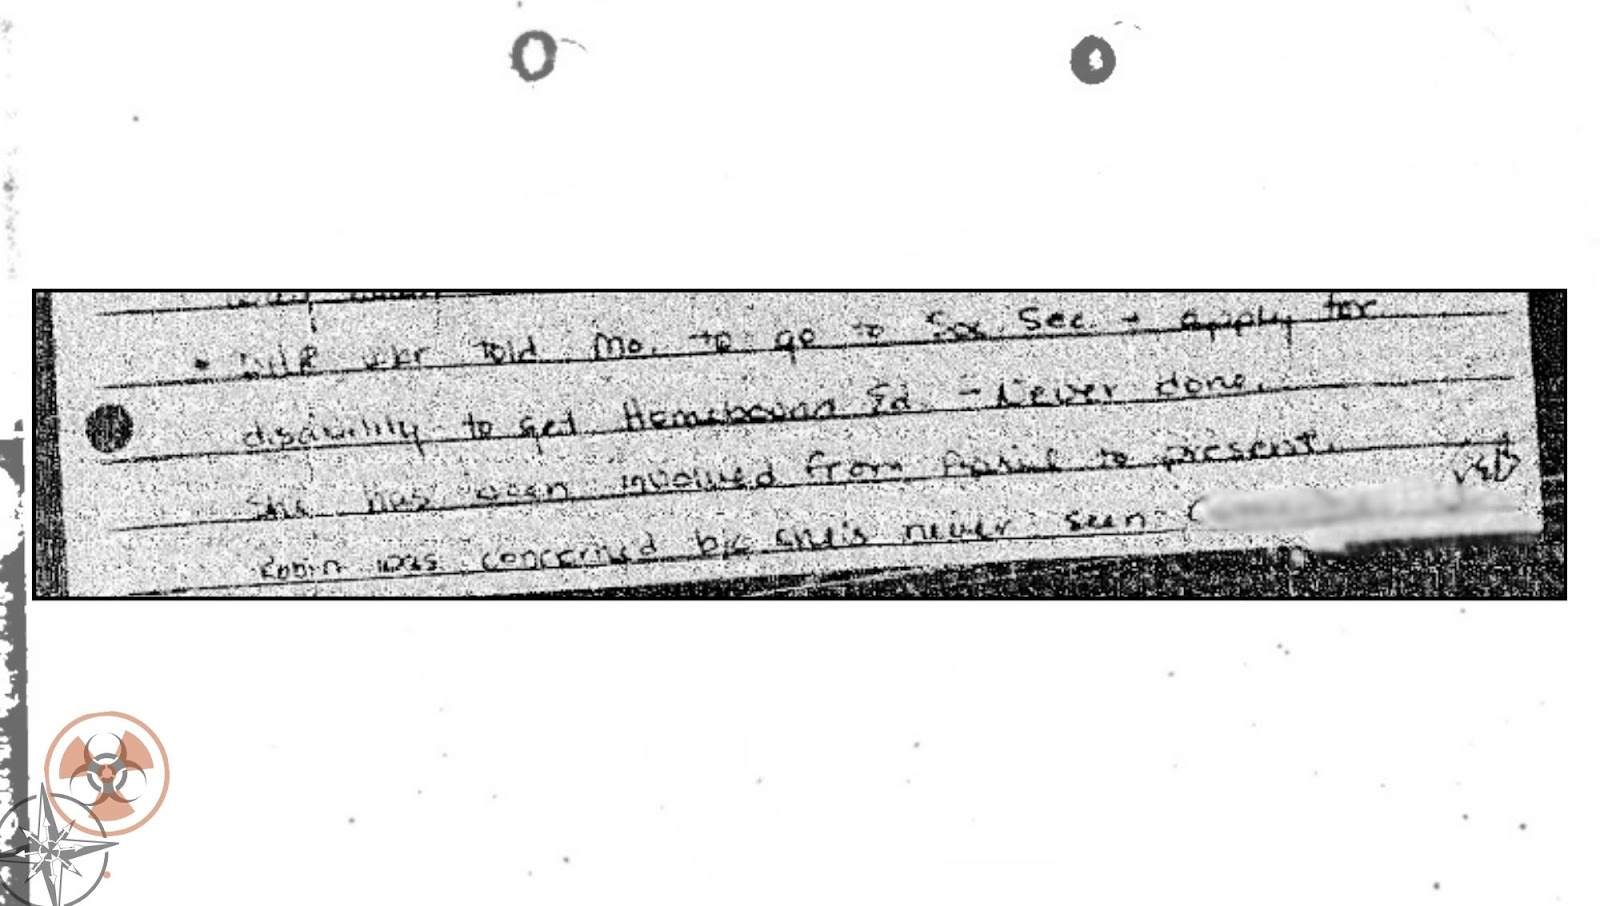 • wkr told Mo. to go to Soc Sec. → apply for
disability to get Homebound Ed. - Never done.
She has been involved from April to present.
Robin was concerned b/c she's never seen